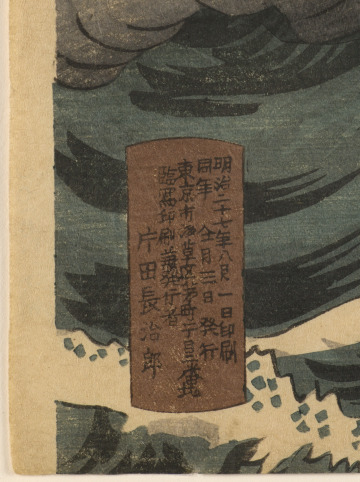 明治二十七年八月一日印刷
同年仝月三日発行
東京市浅草区茅町二丁目
臨写印刷兼発行者
片田長治郎